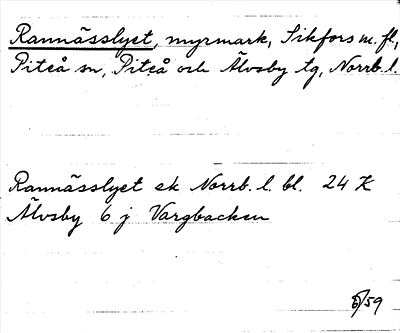 Rannässlyet, myrmark, Sikfors m. fl.,
Piteå sn, Piteå och Älvsby tg, Norrb. l.
Rannässlyet ek Norrb. l. bl. 24 K
Älvsby 6 j Vargbacken
6/59